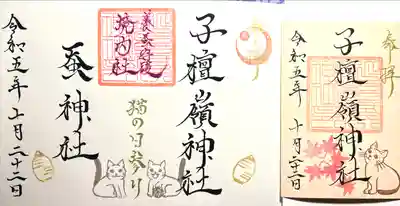 子檀嶺神社
猫の日参り
境内社
蚕神社
令和五年十月二十二日
奉拝
子檀嶺神社
令和五年十月二十二日